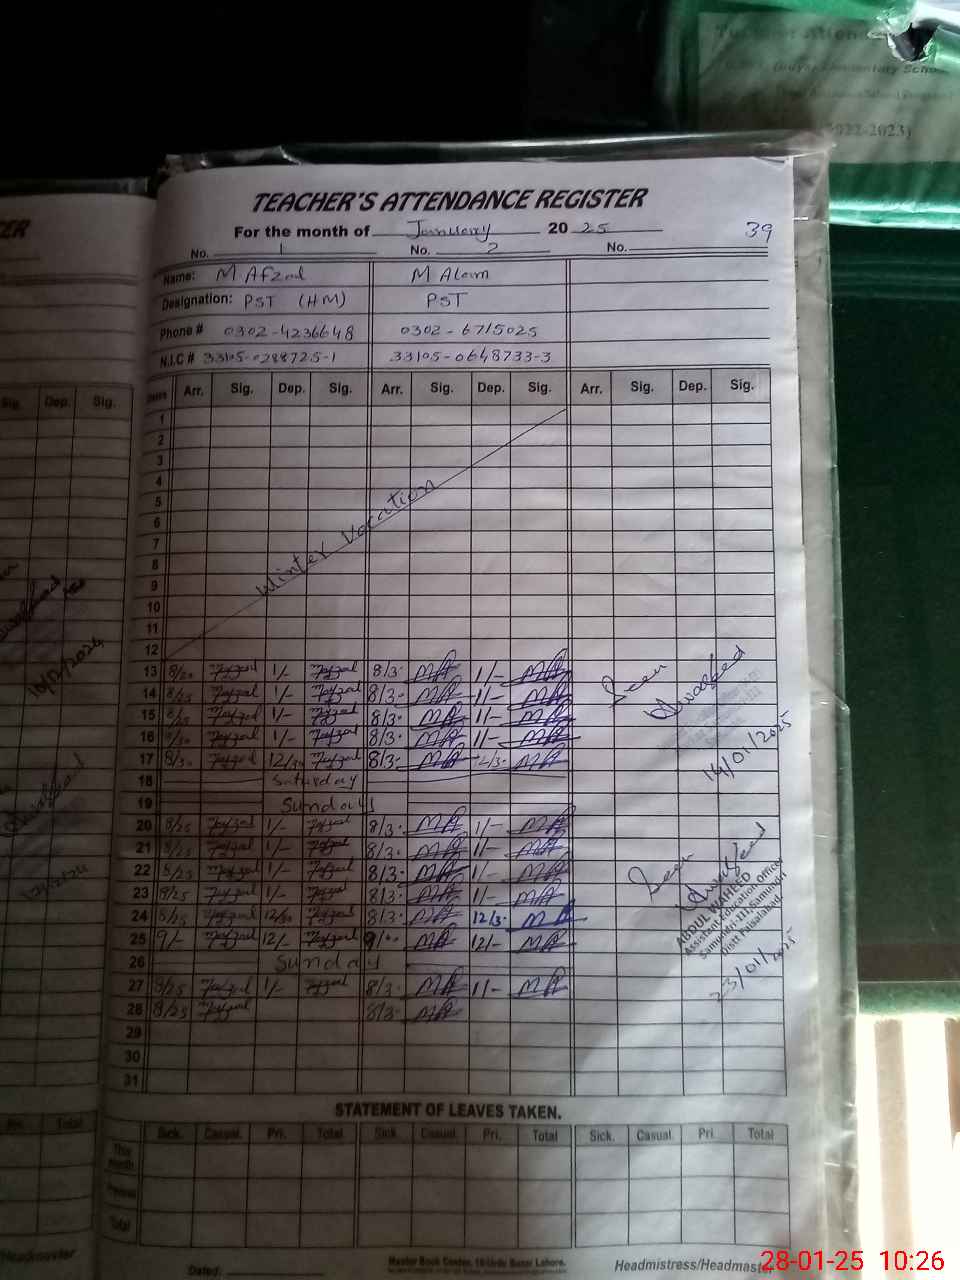 Teachers Attend
Elementary School
(2022-2023)
TEACHER'S ATTENDANCE REGISTER
For the month of January 20 25
39
No. 1 No. 2 No.
Name: M Afzal M Alam
Designation: PST (HM) PST
Phone # 0302-4236648 0302-6715025
N.I.C # 33105-0288725-1 33105-0648733-3
Sig. Dep. Sig.
Dates Arr. Sig. Dep. Sig. Arr. Sig. Dep. Sig. Arr. Sig. Dep. Sig.
1
2
3
4
5
6
7
8
9
10
11
12
Winter Vacation
13 8/20 Mafzal 1/- Mafzal 8/3. MA 1/- MA
14 8/25 Mafzal 1/- Mafzal 8/3. MA 1/- MA
15 8/25 Mafzal 1/- Mafzal 8/3. MA 1/- MA
16 8/30 Mafzal 1/- Mafzal 8/3. MA 1/- MA
17 8/30 Mafzal 12/30 Mafzal 8/3. MA 12/3. MA
18 Saturday
19 Sunday
20 8/25 Mafzal 1/- Mafzal 8/3. MA 1/- MA
21 8/25 Mafzal 1/- Mafzal 8/3. MA 1/- MA
22 8/25 Mafzal 1/- Mafzal 8/3. MA 1/- MA
23 8/25 Mafzal 1/- Mafzal 8/3. MA 1/- MA
24 8/25 Mafzal 12/30 Mafzal 8/3. MA 12/3. MA
25 9/- Mafzal 12/- Mafzal 9/. MA 12/- MA
26 Sunday
27 8/25 Mafzal 1/- Mafzal 8/3. MA 1/- MA
28 8/25 Mafzal 8/3. MA
29
30
31
Seen
14/01/2025
Seen
ABDUL WAHEED
Assistent Education Officer
Samundri-III, Samundri
Distt Faisalabad.
23/01/2025
10/12/2024
STATEMENT OF LEAVES TAKEN.
Sick. Casual. Pri. Total Sick. Casual. Pri. Total Sick. Casual. Pri. Total
This Month
Total
Pri. Total
Headmaster
Dated:
Master Book Center, 16 Urdu Bazar Lahore.
Headmistress/Headmaster
28-01-25 10:26